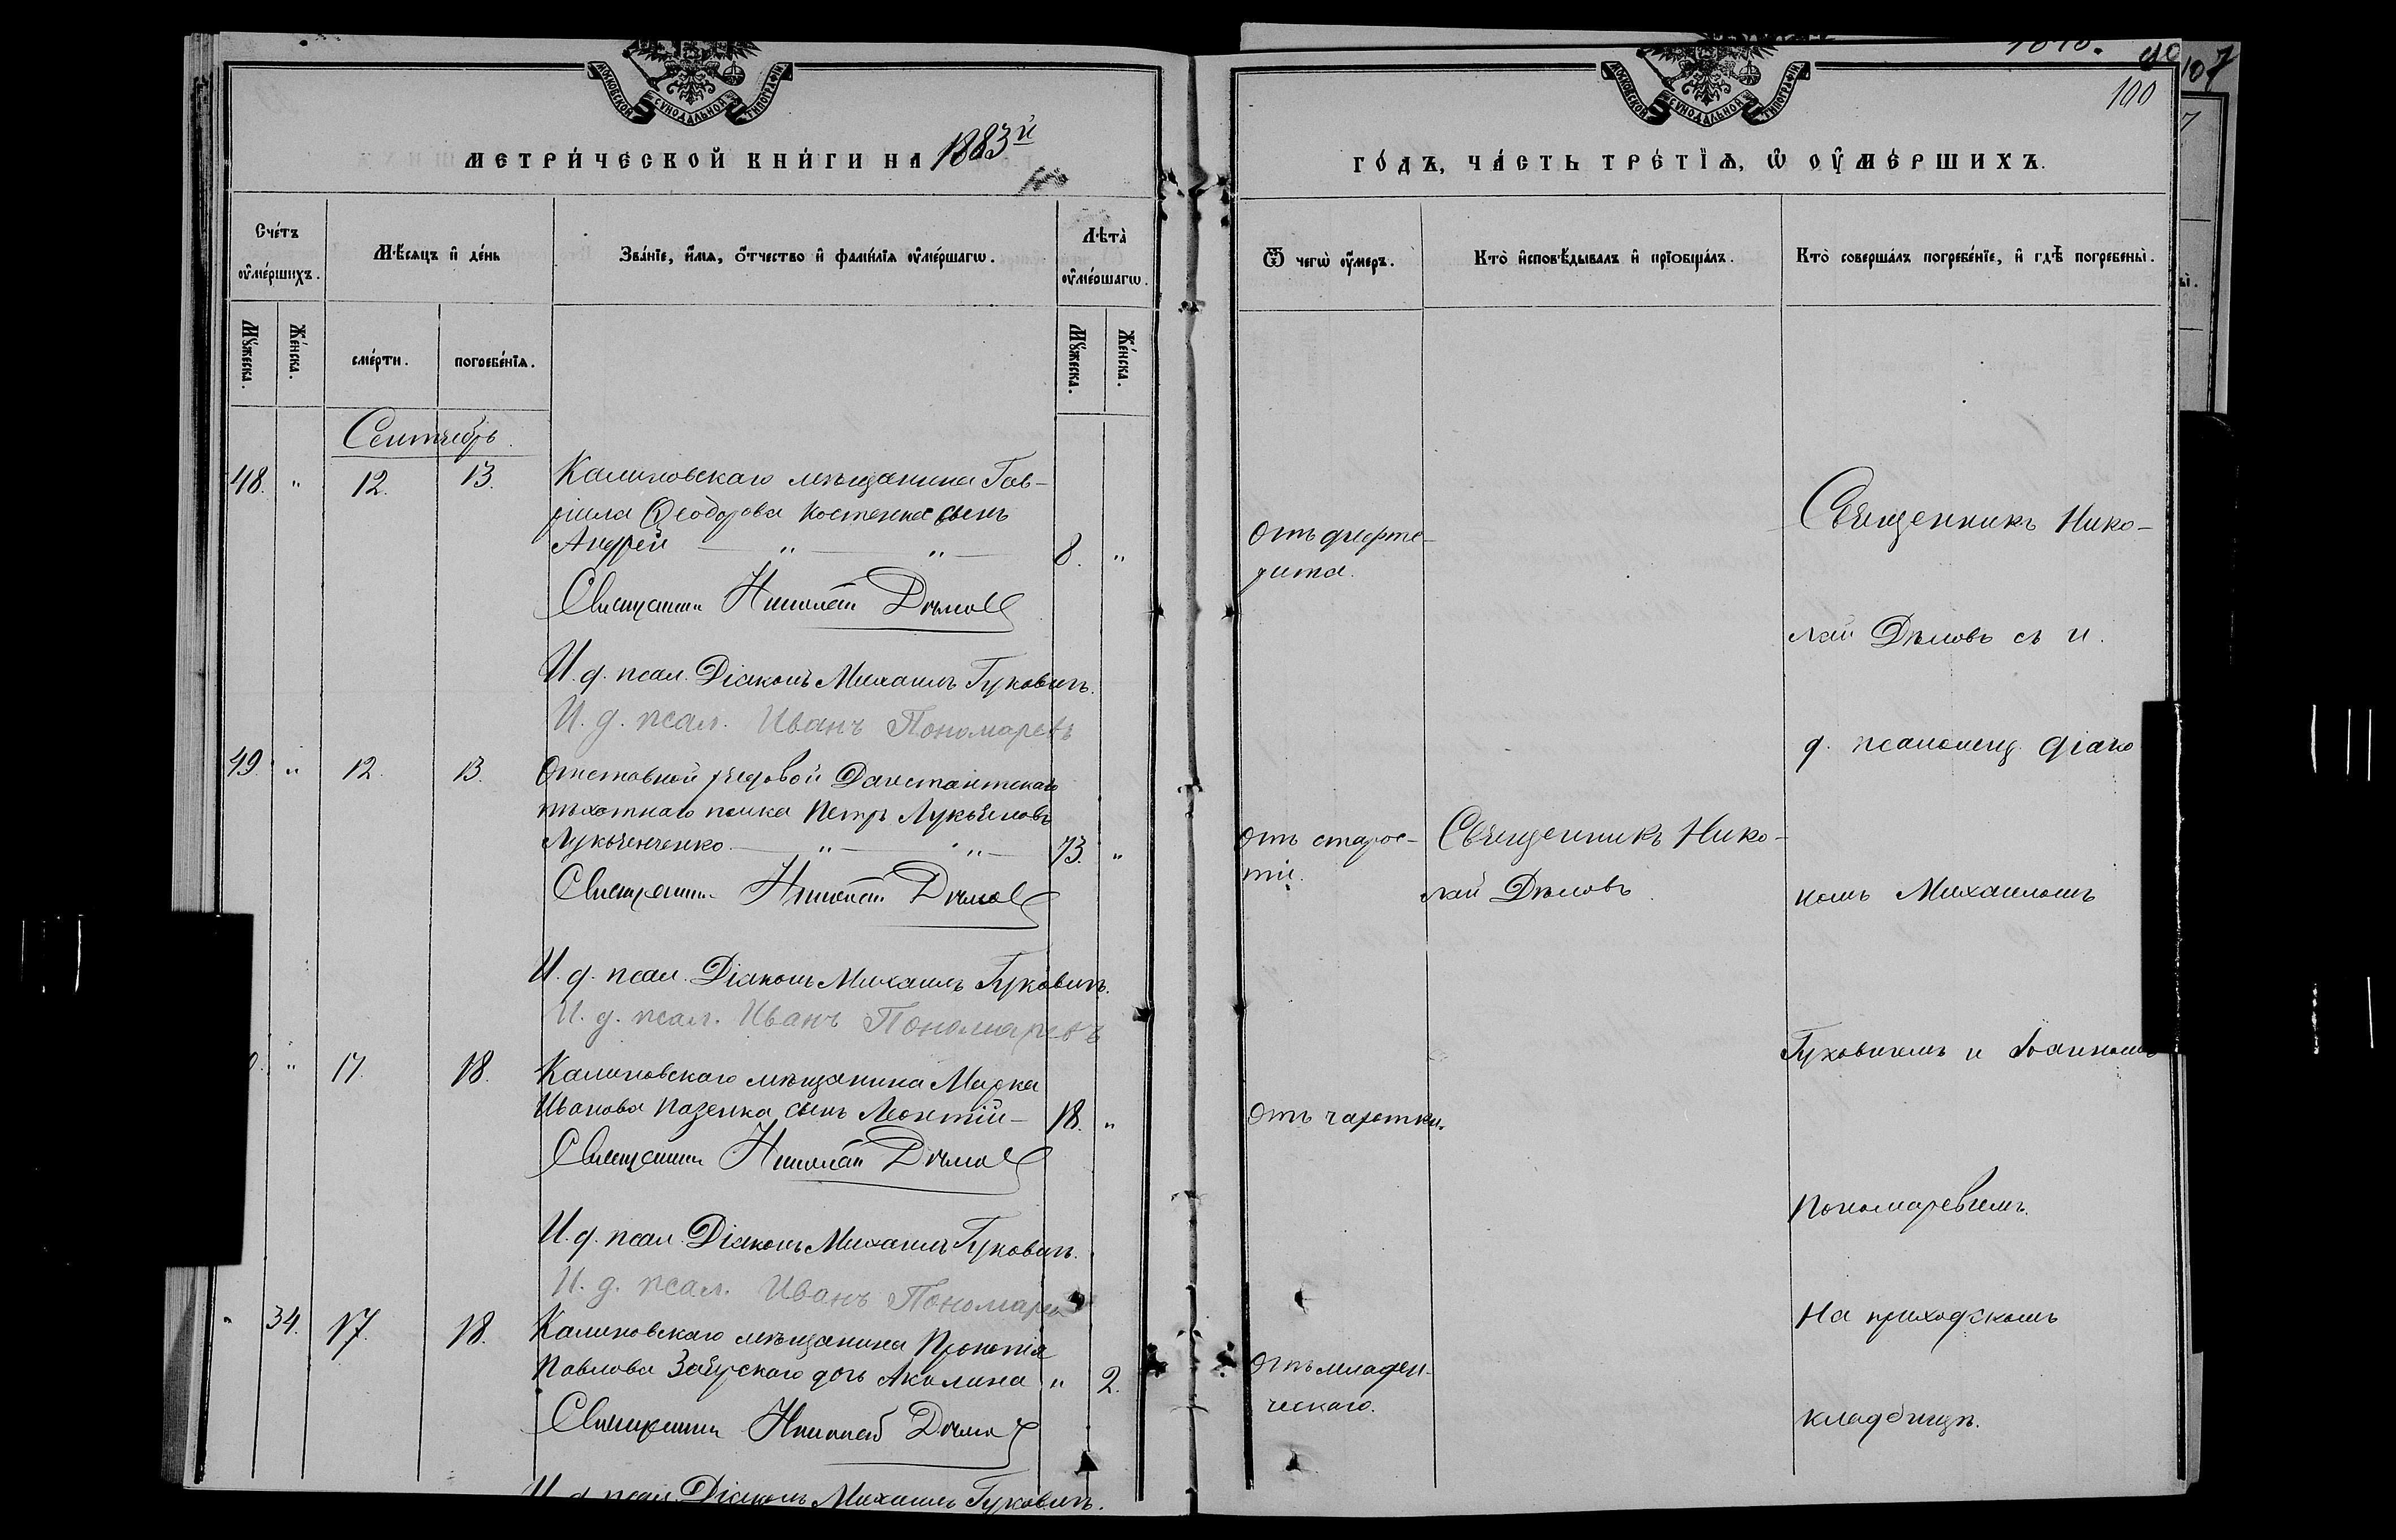 МОСКОВСКОЙ СѴНОДАЛЬНОЙ ТИПОГРАФІИ
МЕТРИ́ЧЕСКОЙ КНИ́ГИ НА 1883й
Сче́тъ ᲂу҆ме́ршихъ.
Мѣ́сяцъ и҆ де́нь
Зва́нїе, и҆́мѧ, ѻ҆́тчество и҆ фамі́лїѧ ᲂу҆ме́ршагѡ.
Лѣта̀ ᲂу҆ме́ршагѡ.
Мꙋ́жеска.
Же́нска.
сме́рти.
погребе́нїѧ.
Мꙋ́жеска.
Же́нска.
Сентябрь
48. " 12. 13. Калиновскаго мѣщанина Гав-
ріила Ѳеодорова Костенка сынъ
Андрей — " — " — 8. "
Священникъ Николай Дѣмовъ
И. д. псал. Діаконъ Михаилъ Гуковичъ.
И. д. псал. Иванъ Пономаревъ
49. " 12. 13. Отставной рядовой Дагестантскаго
пѣхотнаго полка Петръ Лукьяновъ
Лукьянченко — " — " — 73. "
Священникъ Николай Дѣмовъ
И. д. псал. Діаконъ Михаилъ Гуковичъ.
И. д. псал. Иванъ Пономаревъ
" 17. 18. Калиновскаго мѣщанина Марка
Иванова Пазенка сынъ Леонтій — 18. "
Священникъ Николай Дѣмовъ
И. д. псал. Діаконъ Михаилъ Гуковичъ.
И. д. псал. Иванъ Пономарев
" 34. 17. 18. Калиновскаго мѣщанина Прокопія
Павлова Заярскаго дочь Акилина " 2.
Священникъ Николай Дѣмовъ
И. д. псал. Діаконъ Михаилъ Гуковичъ.
107
100
МОСКОВСКОЙ СѴНОДАЛЬНОЙ ТИПОГРАФІИ
ГО́ДЪ, ЧА́СТЬ ТРЕ́ТЇѦ, Ѡ҆ ОУ҆МЕ́РШИХЪ.
Ѿ чегѡ̀ ᲂу҆́меръ.
Кто̀ и҆сповѣ́дывалъ и҆ прїѻбща́лъ.
Кто̀ соверша́лъ погребе́нїе, и҆ гдѣ̀ погребены̀.
Отъ дифте-
рита.
Священникъ Нико-
лай Дѣмовъ съ и.
д. псаломщ. діако
Отъ старос-
ти.
Священникъ Нико-
лай Дѣмовъ.
номъ Михаиломъ
Гуковичемъ и Іоанномъ
Отъ чахотки.
Пономаревымъ.
На приходскомъ
Отъ младен-
ческаго.
кладбищѣ.